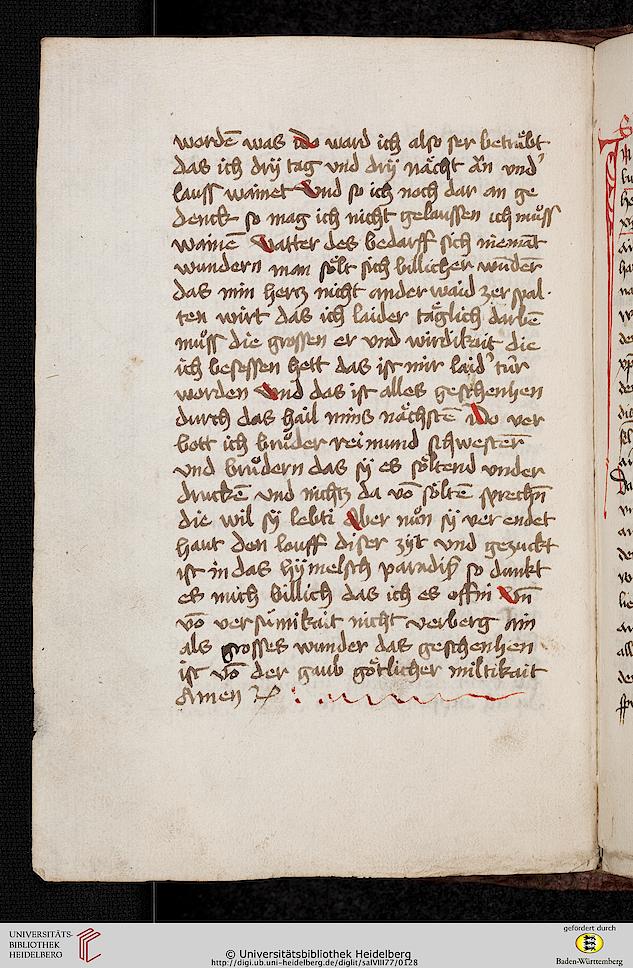 wordē was Do ward ich also ser betrübt
das ich drÿ tag vnd drÿ nächt ān vnd'
lauss wainet Vnd so ich noch dar an ge
denck so mag ich nicht gelaussen ich müss
wainē Vatter des bedarff sich niemāt
wundern man sölt sich billicher wūdēr
das min hertz nicht anderwaid zerspal-
ten wirt das ich laider täglich darbē
müss die grossen er vnd wirdikait die
ich besessen hett das ist mir laid' tür
worden Vnd das ist alles geschenhen
durch das hail mins nächstē Do ver
bott ich brüder reimund schwestern
vnd brüdern das sÿ es söltend vnder
druckē vnd nichtz da vō söltē sprechn̄
die wil sÿ lebti Aber nün sÿ verendet
haut den louff diser zÿt vnd gezuckt
ist in das hÿmelsch paradiß so dunkt
es mich billich das ich es offni Vn̄
vō versümikait nicht verberg ain
als grosses wunder das geschenhen
ist vō der gaub götlicher miltikait
Amen
UNIVERSITÄTS-
BIBLIOTHEK
HEIDELBERG
© Universitätsbibliothek Heidelberg
http://digi.ub.uni-heidelberg.de/diglit/salVIII77/0128
gefördert durch
Baden-Württemberg